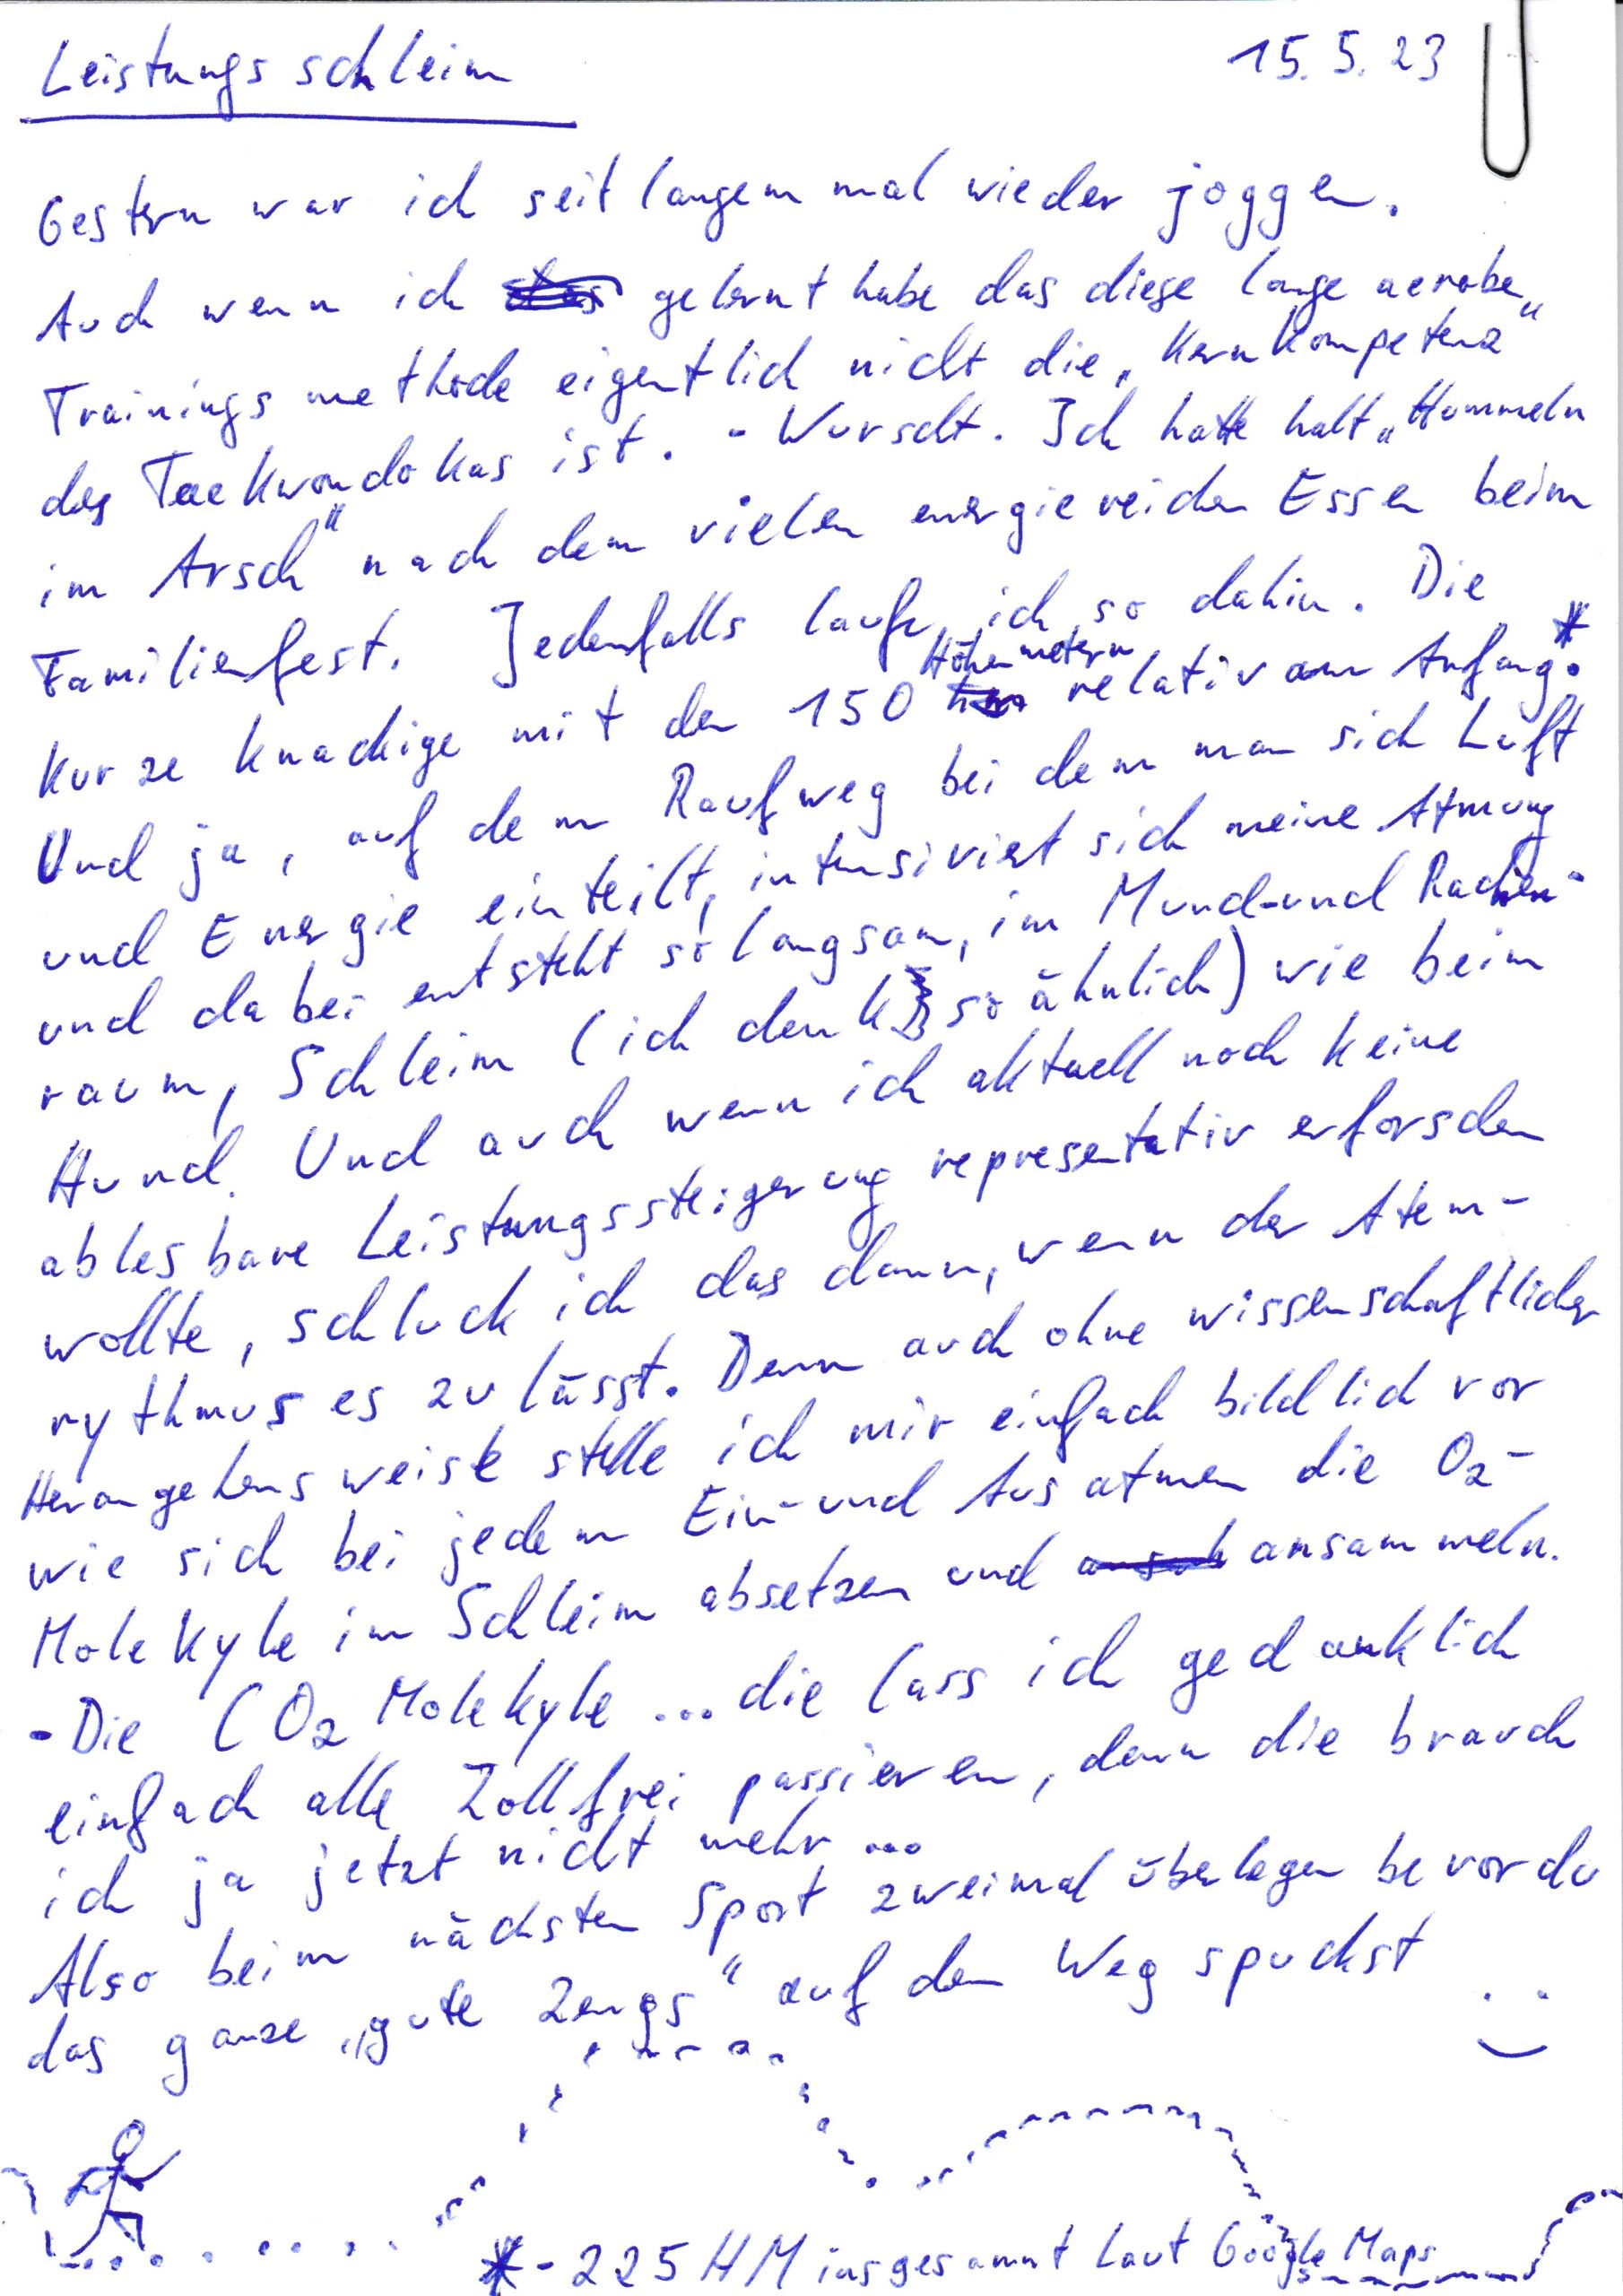 Leistungsschleim 15.5.23
Gestern war ich seit langem mal wieder joggen.
Auch wenn ich gelernt habe das diese lange aerobe
Trainingsmethode eigentlich nicht die „Kernkompetenz“
des Taekwondokas ist. - Wurscht. Ich hatte halt „Hummeln
im Arsch“ nach dem vielen energiereichen Essen beim
Familienfest. Jedenfalls laufe ich so dahin. Die
kurze knackige mit den 150 Höhenmetern relativ am Anfang*.
Und ja, auf dem Raufweg bei dem man sich Luft
und Energie einteilt, intensiviert sich meine Atmung
und dabei entsteht so langsam, im Mund-und Rachen-
raum, Schleim (ich denk so ähnlich) wie beim
Hund. Und auch wenn ich aktuell noch keine
ablesbare Leistungssteigerung representativ erforschen
wollte, schluck ich das dann, wenn der Atem-
rythmus es zulässt. Denn auch ohne wissenschaftlicher
Herangehensweise stelle ich mir einfach bildlich vor
wie sich bei jedem Ein-und Ausatmen die O₂-
Molekyle im Schleim absetzen und ansammeln.
- Die CO₂ Molekyle ... die lass ich gedanklich
einfach alle Zollfrei passieren, denn die brauch
ich ja jetzt nicht mehr ...
Also beim nächsten Sport zweimal überlegen bevor du
das ganze „gute Zeugs“ auf den Weg spuckst
* - 225 HM insgesammt laut Google Maps